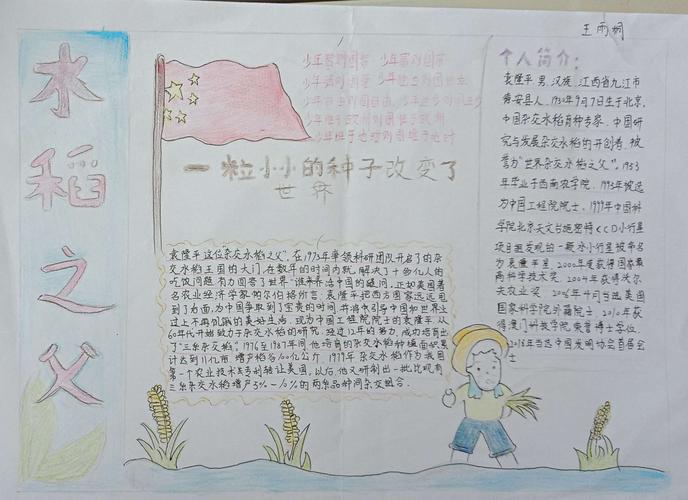 王雨桐
水稻之父
少年智则国智 少年富则国富
少年强则国强 少年独立则国独立
少年自由则国自由 少年进步则国进步
少年胜于欧洲则国胜于欧洲
少年雄于地球则国雄于地球
一粒小小的种子改变了
世界
个人简介:
袁隆平 男,汉族,江西省九江市
德安县人,1930年9月7日生于北京,
中国杂交水稻育种专家,中国研
究与发展杂交水稻的开创者,被
誉为"世界杂交水稻之父",1953
年毕业于西南农学院,1995年被选
为中国工程院院士,1999年中国科
学院北京天文台施密特CCD小行星
项目组发现的一颗小行星被命名
为袁隆平星,2000年度获得国家最
高科学技术奖 2004年获得沃尔
夫农业奖 2006年4月当选美国
国家科学院外籍院士,2010年获
得澳门科技学院荣誉博士学位
2018年当选中国发明协会首届会
士
袁隆平这位"杂交水稻之父",在1973年率领科研团队开启了的杂
交水稻王国的大门,在数年的时间内就解决了十多亿人的
吃饭问题,有力回答了世界"谁来养活中国的疑问,正如美国著
名农业经济学家帕尔伯格所言,袁隆平把西方国家远远甩
到了后面,为中国争取到了宝贵的时间,并将引导中国和世界上
过上不再饥饿的美好生活,现为中国工程院院士的袁隆平从
60年代开始致力于杂交水稻的研究,经过12年的努力,成功培育出
了"三系杂交稻",1976至1987年间他培育的杂交水稻种植面积累
计达到11亿亩,增产稻谷100亿公斤,1979年杂交水稻作为我国
第一个农业技术专利转让美国,以后他又研制出一批比现有
三系杂交水稻增产5%-10%的两系品种间杂交组合.